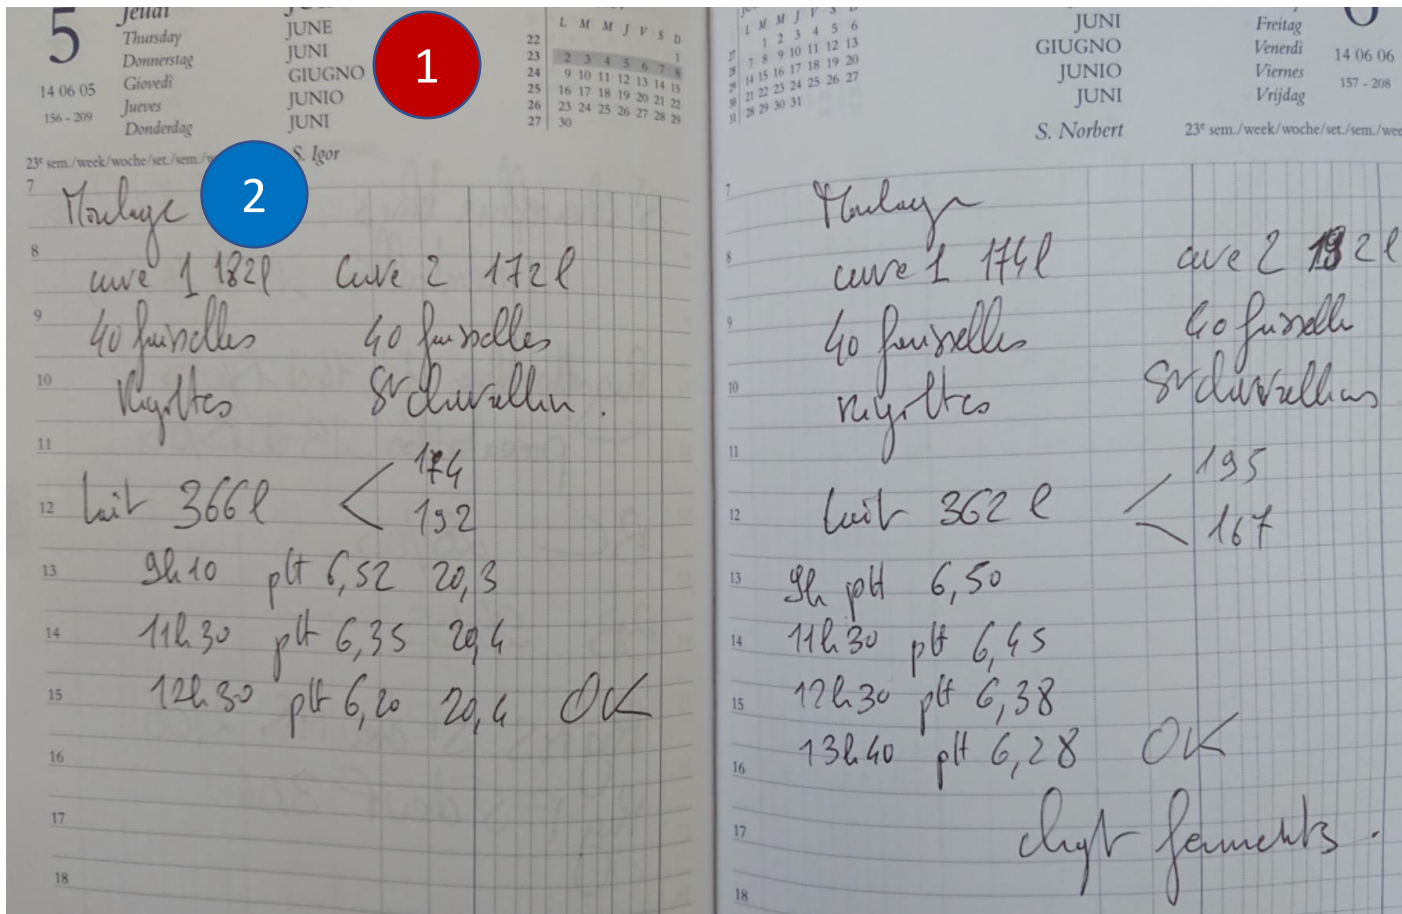 5
Jeudi
Thursday
Donnerstag
Giovedì
Jueves
Donderdag
JUNE
JUNI
GIUGNO
JUNIO
JUNI
1
14 06 05
156 - 209
L M M J V S D
22 1
23 2 3 4 5 6 7 8
24 9 10 11 12 13 14 15
25 16 17 18 19 20 21 22
26 23 24 25 26 27 28 29
27 30
S. Igor
23e sem./week/woche/set./sem./
2
7
Moulage
8
cuve 1 182l cuve 2 172l
9
40 faisselles 40 faisselles
10
Rigottes St Marcellin.
11
174
12
lait 366l < 192
13
9h10 pH 6,52 20,3
14
11h30 pH 6,35 20,4
15
12h30 pH 6,20 20,4 OK
16
17
18
L M M J V S D
1 2 3 4 5 6
7 8 9 10 11 12 13
14 15 16 17 18 19 20
21 22 23 24 25 26 27
31 28 29 30 31
JUNI
GIUGNO
JUNIO
JUNI
S. Norbert
Freitag
Venerdì
Viernes
Vrijdag
14 06 06
157 - 208
23e sem./week/woche/set./sem./wee
7
Moulage
8
cuve 1 174l cuve 2 192l
9
40 faisselles 40 faisselle
10
rigottes St Marcellins
11
195
12
lait 362l < 167
13
9h pH 6,50
14
11h30 pH 6,45
15
12h30 pH 6,38
13h40 pH 6,28 OK
16
17
chgt ferments.
18